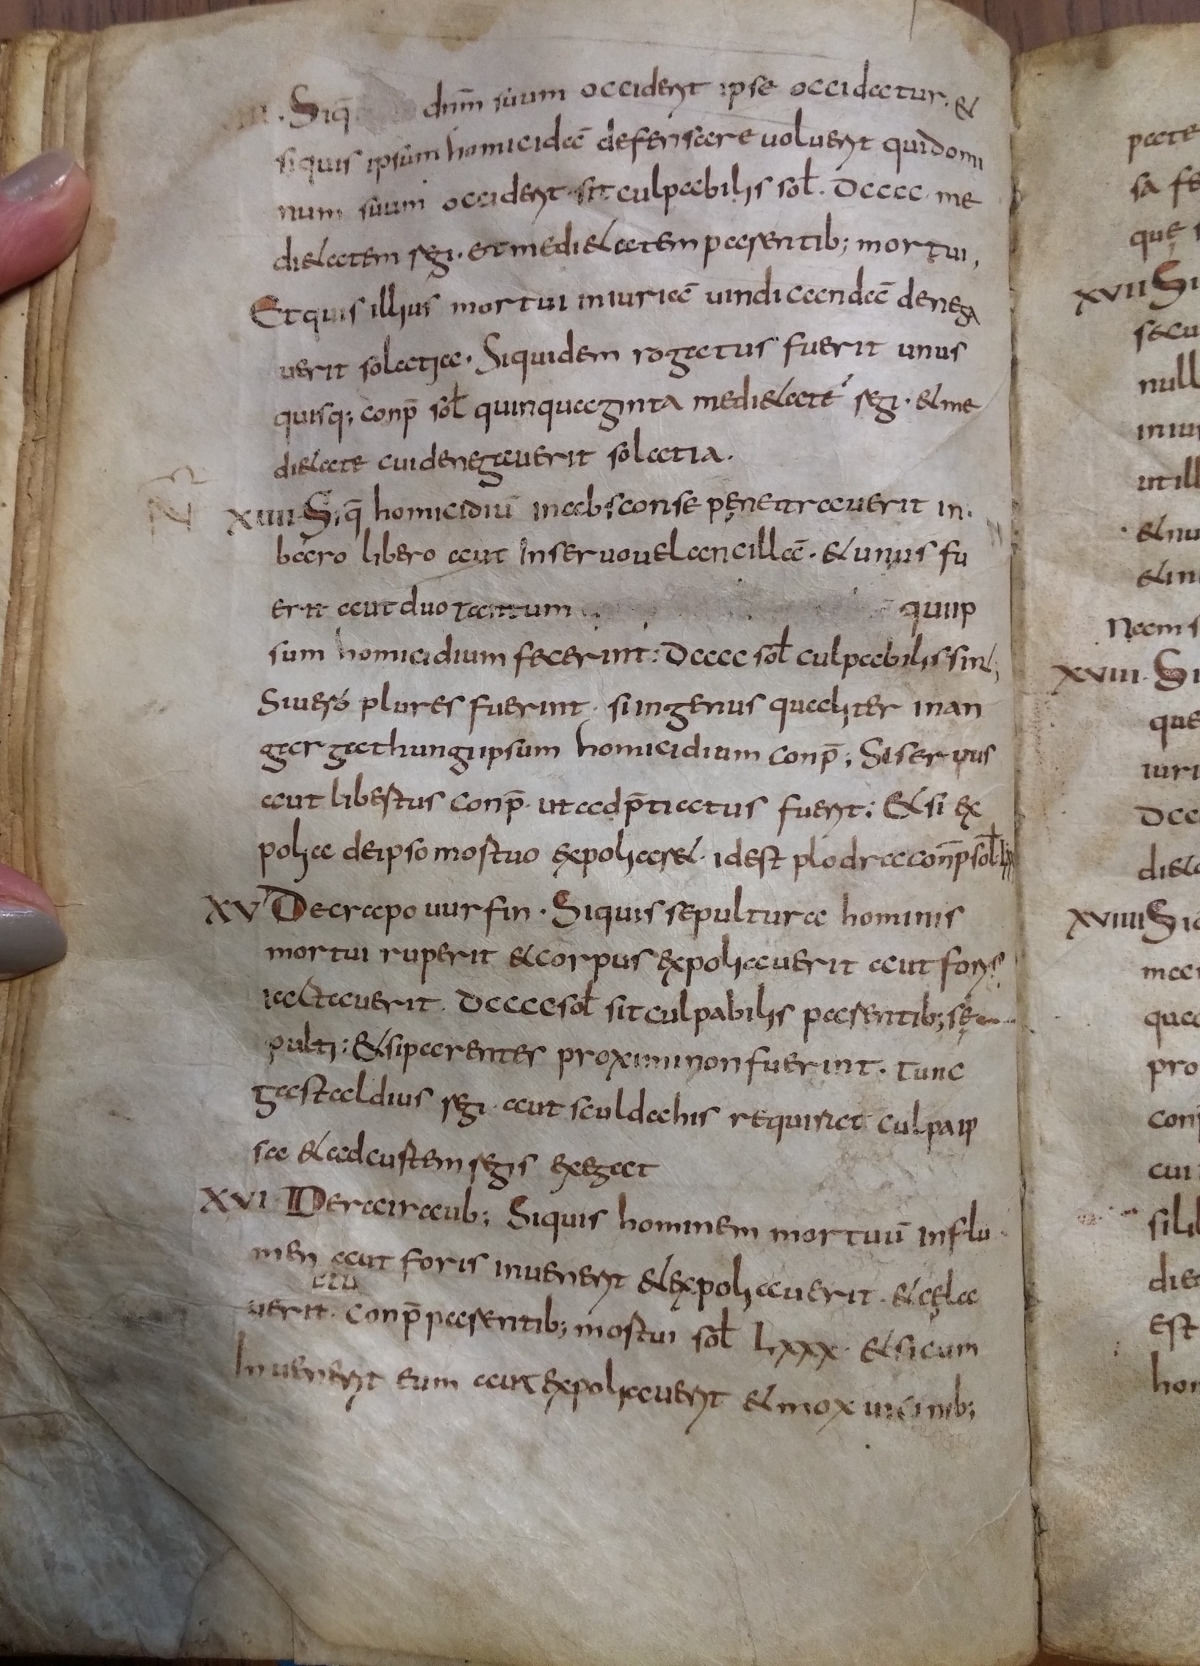 Siq̄ dn̄m suum occiderit ipse occidatur. &
siquis ipsum homicidā defensare uoluerit quidomi
num suum occiderit sit culpabilis sol. DCCCC me
di&atem regi. et medi&atem parentib; mortui,
Et quis illius mortui iniuriā uindicandā denega
uerit solatia. Siquidem rogatus fuerit unus
quisq; conp̄ sol quinquaginta medi&atē regi. & me
di&ate cui denegauerit solatia.
XIIII Siq̄ homicidiū in absconse penetrauerit in
baro libero aut In seruo uel ancillā. & unus fu
erit aut duo tantum qui ip
sum homicidium fecerint: DCCCC sol culpabilis sint;
Si uero plures fuerint si ingenus qualiter in an
gargathungi ipsum homicidium conp̄; Si seruus
aut libertus conp̄ ut adp̄tiatus fuerit; & si ex
polia de ipso mortuo expoliaser& id est plodra conp̄ sol
XV De crapo uurfin. Siquis sepultura hominis
mortui ruperit & corpus expoliauerit aut foris
iactauerit DCCCC sol sit culpabilis parentib; se
pulti: & si parentes proximi non fuerint. tunc
gastaldius regi aut sculdahis requirat culpa ip
sa & ad curtem regis exegat
XVI De rairaub; Siquis hominem mortuū in flu
men aut foris inuenerit & expoliauerit & cela
uerit. conp̄ parentib; mortui sol LXXX & si eum
Inuenerit eum aut expoliauerit & mox uicinib;
pecte
sa fe
que
XVII Si
secu
null
iniu
ut ill
& nu
& in
Nam s
XVIII Si
que
iuri
DCC
di&
XVIIII Sic
mar
qua
pro
con
cui
sili
die
est
hon